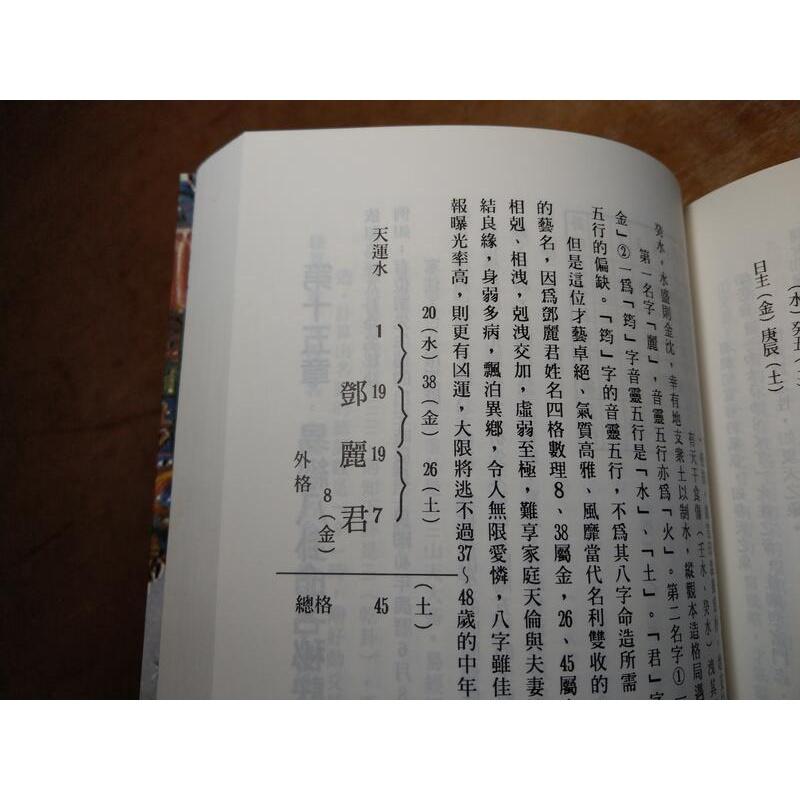 日主（金）庚辰（土）
（水）癸丑（土）
有天干食傷（壬水、癸水）洩其
癸水，水盛則金沈，幸有地支衆土以制水，縱觀本造格局遇
第一名字「麗」，音靈五行亦爲「火」。第二名字①一
金」②一爲「筠」字音靈五行是「水」、「土」。「君」字
五行的偏缺。「筠」字的音靈五行，不爲其八字命造所需
但是這位才藝卓絕、氣質高雅、風靡當代名利雙收的
的藝名，因爲鄧麗君姓名四格數理8、38屬金，26、45屬
相剋、相洩，剋洩交加，虛弱至極，難享家庭天倫與夫妻
結良緣，身弱多病，飄泊異鄉，令人無限愛憐，八字雖佳
報曝光率高，則更有凶運，大限將逃不過37～48歲的中年
20（水）38（金）26（土）
天運水
1
19 鄧
19 麗
7 君
外格
8（金）
（土）
總格 45
第十五章